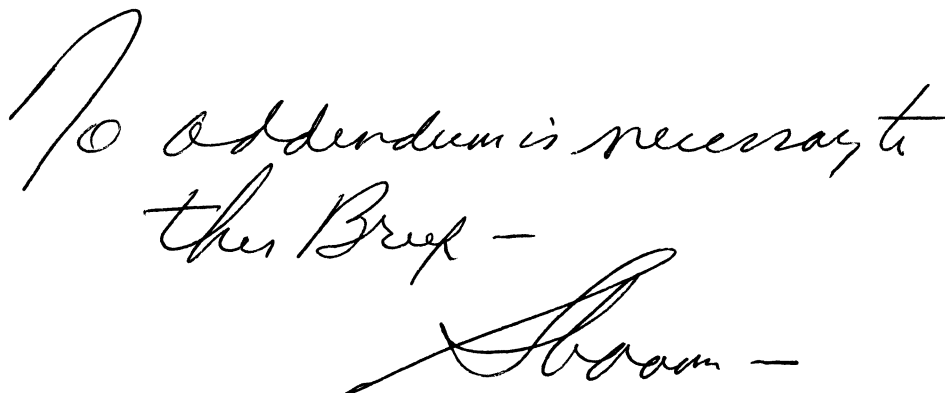 No addendum is necessary to
this Brief —